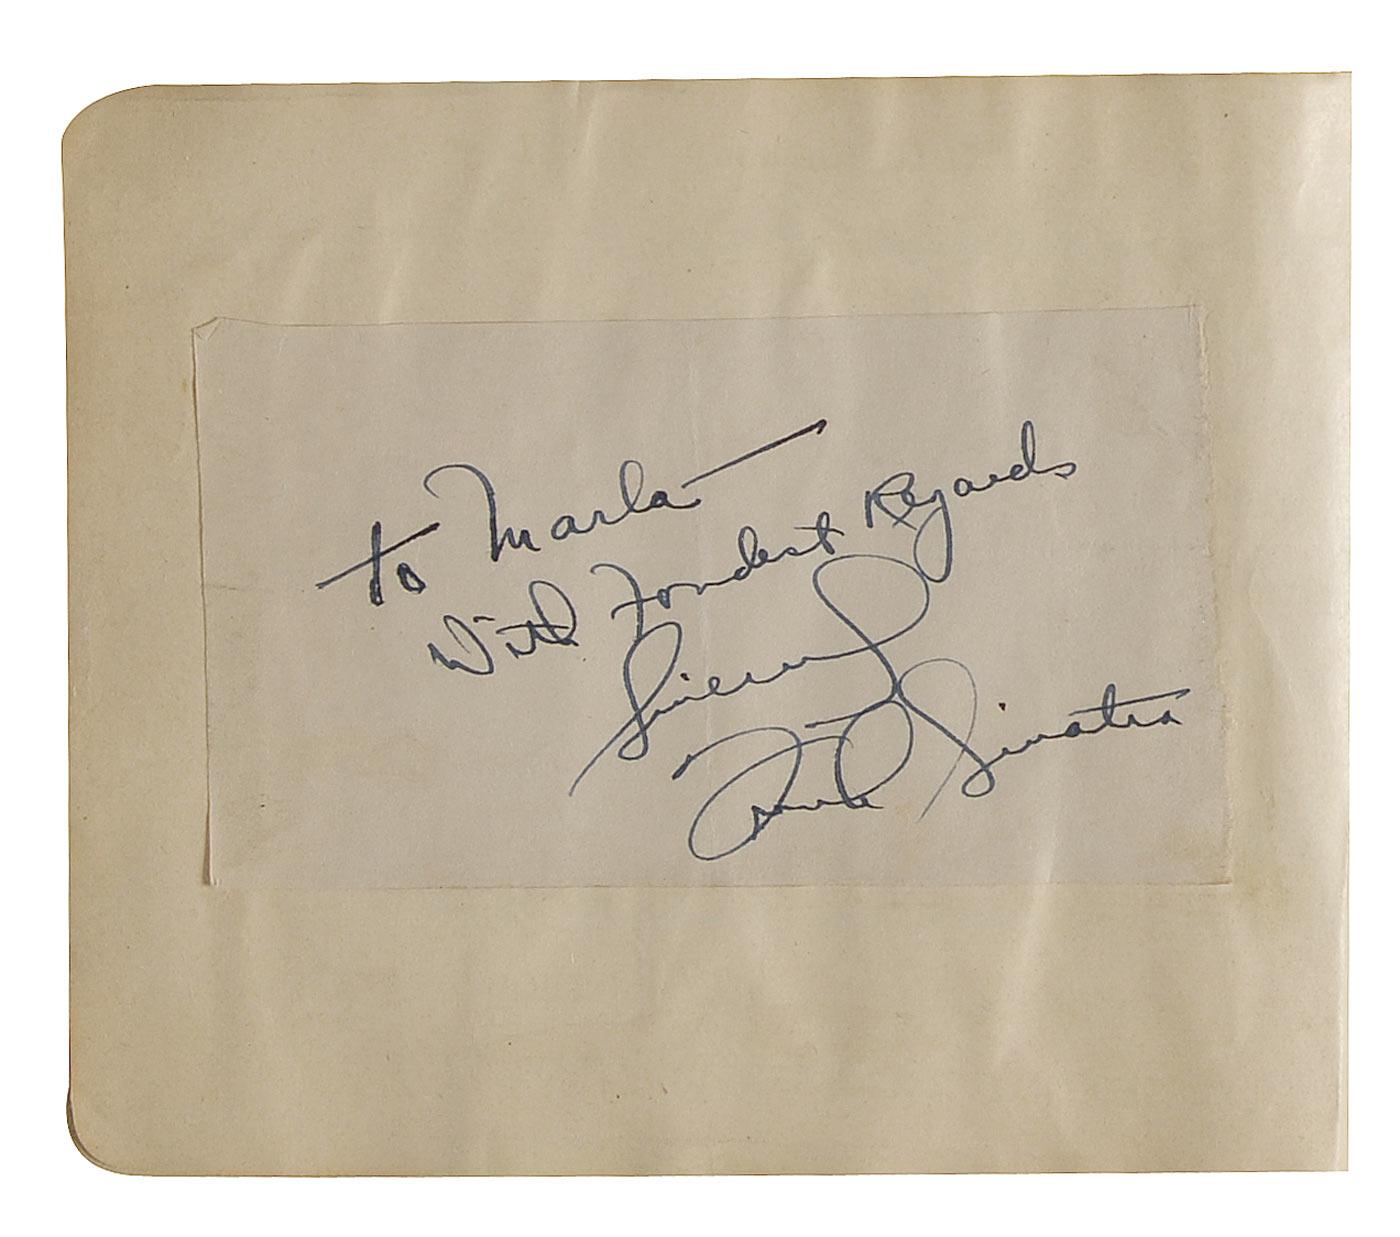 To Marla —
With Fondest Regards
Sincerely
Frank Sinatra